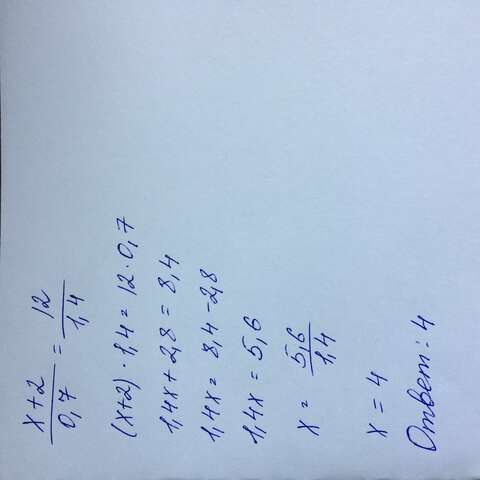 x+2/0,7 = 12/1,4
(x+2)·1,4 = 12·0,7
1,4x + 2,8 = 8,4
1,4x = 8,4 - 2,8
1,4x = 5,6
x = 5,6/1,4
x = 4
Ответ: 4